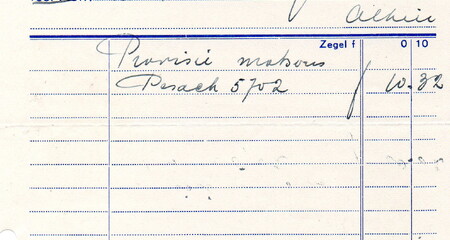 Zegel f 0 10
Provisie matzous
Pesach 5702 10.32